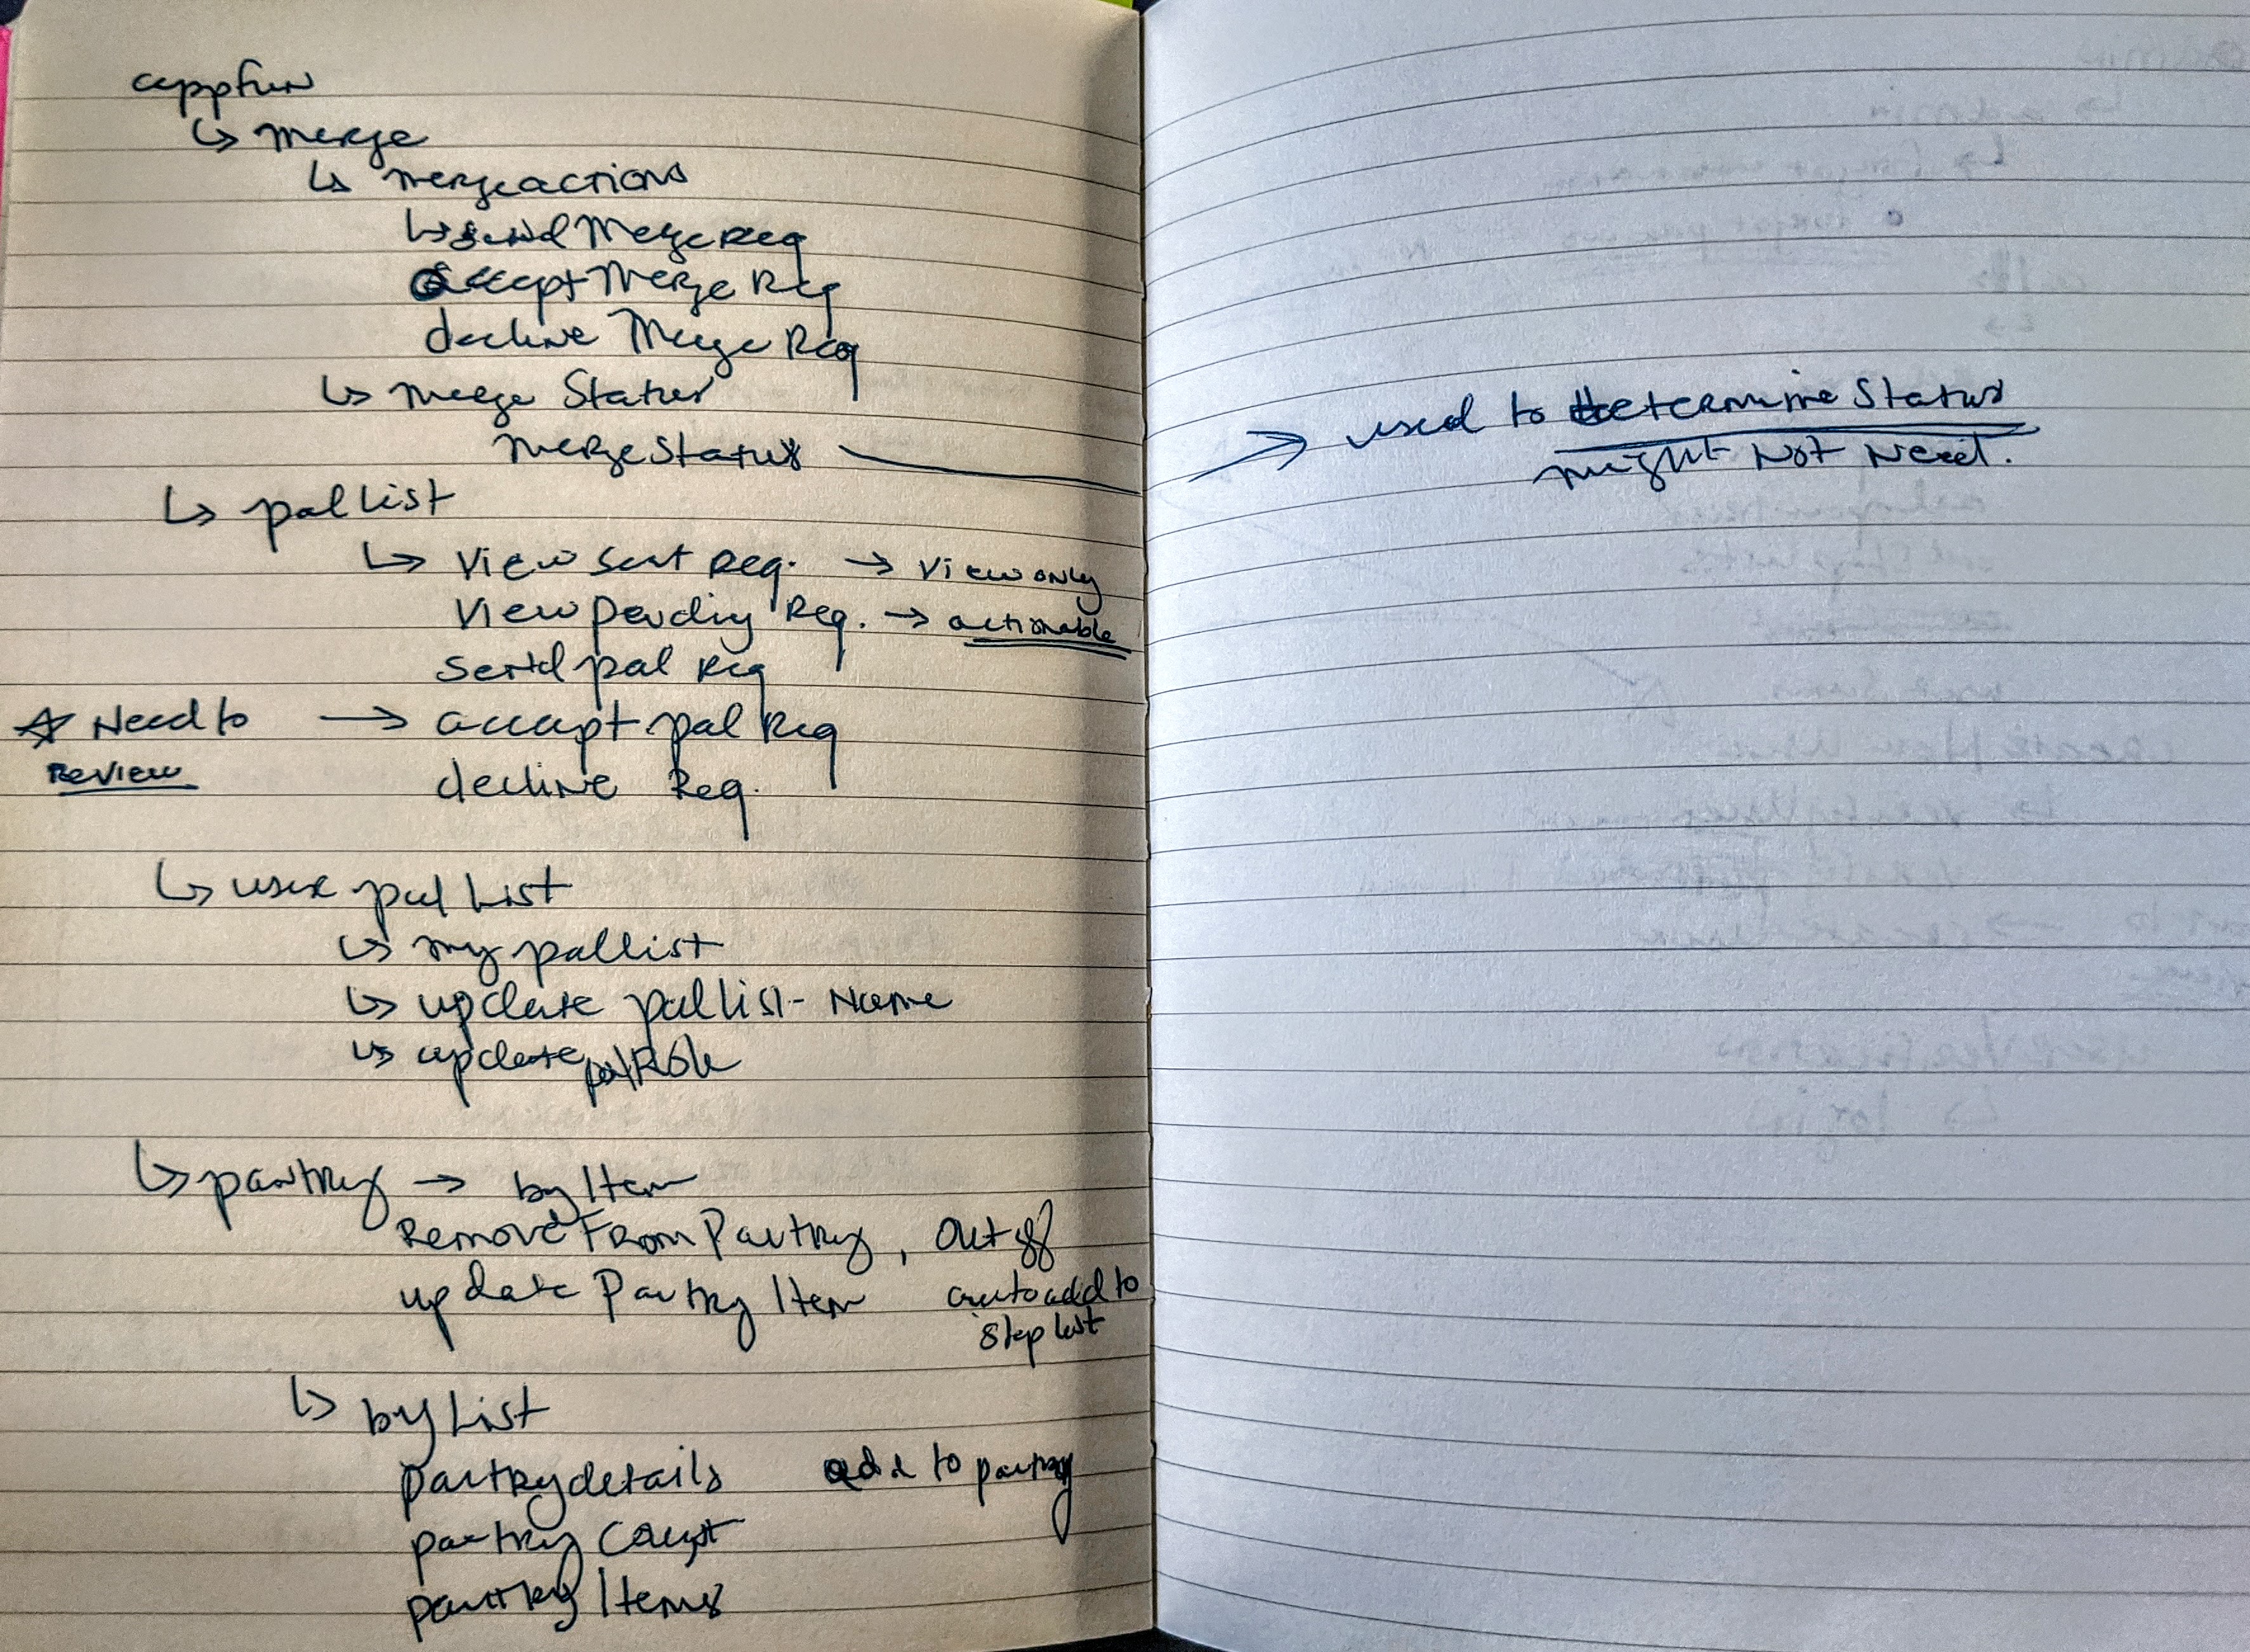 appfun
↳ merge
↳ mergeactions
↳ send Merge Req
accept Merge Req
decline Merge Req
↳ merge Status
merge Status → used to determine Status
might Not Need.
↳ pal list
↳ View Sent Req. → View only
View Pending Req. → actionable
Send pal Req
☆ Need to → accept pal Req
Review
decline Req.
↳ user pal List
↳ my pallist
↳ update pallist - Name
↳ update palRole
↳ pantry → by Item
Remove From Pantry, Out of
update Pantry Item auto add to
list
↳ by List
Pantry details add to pantry
pantry Count
pantry Items